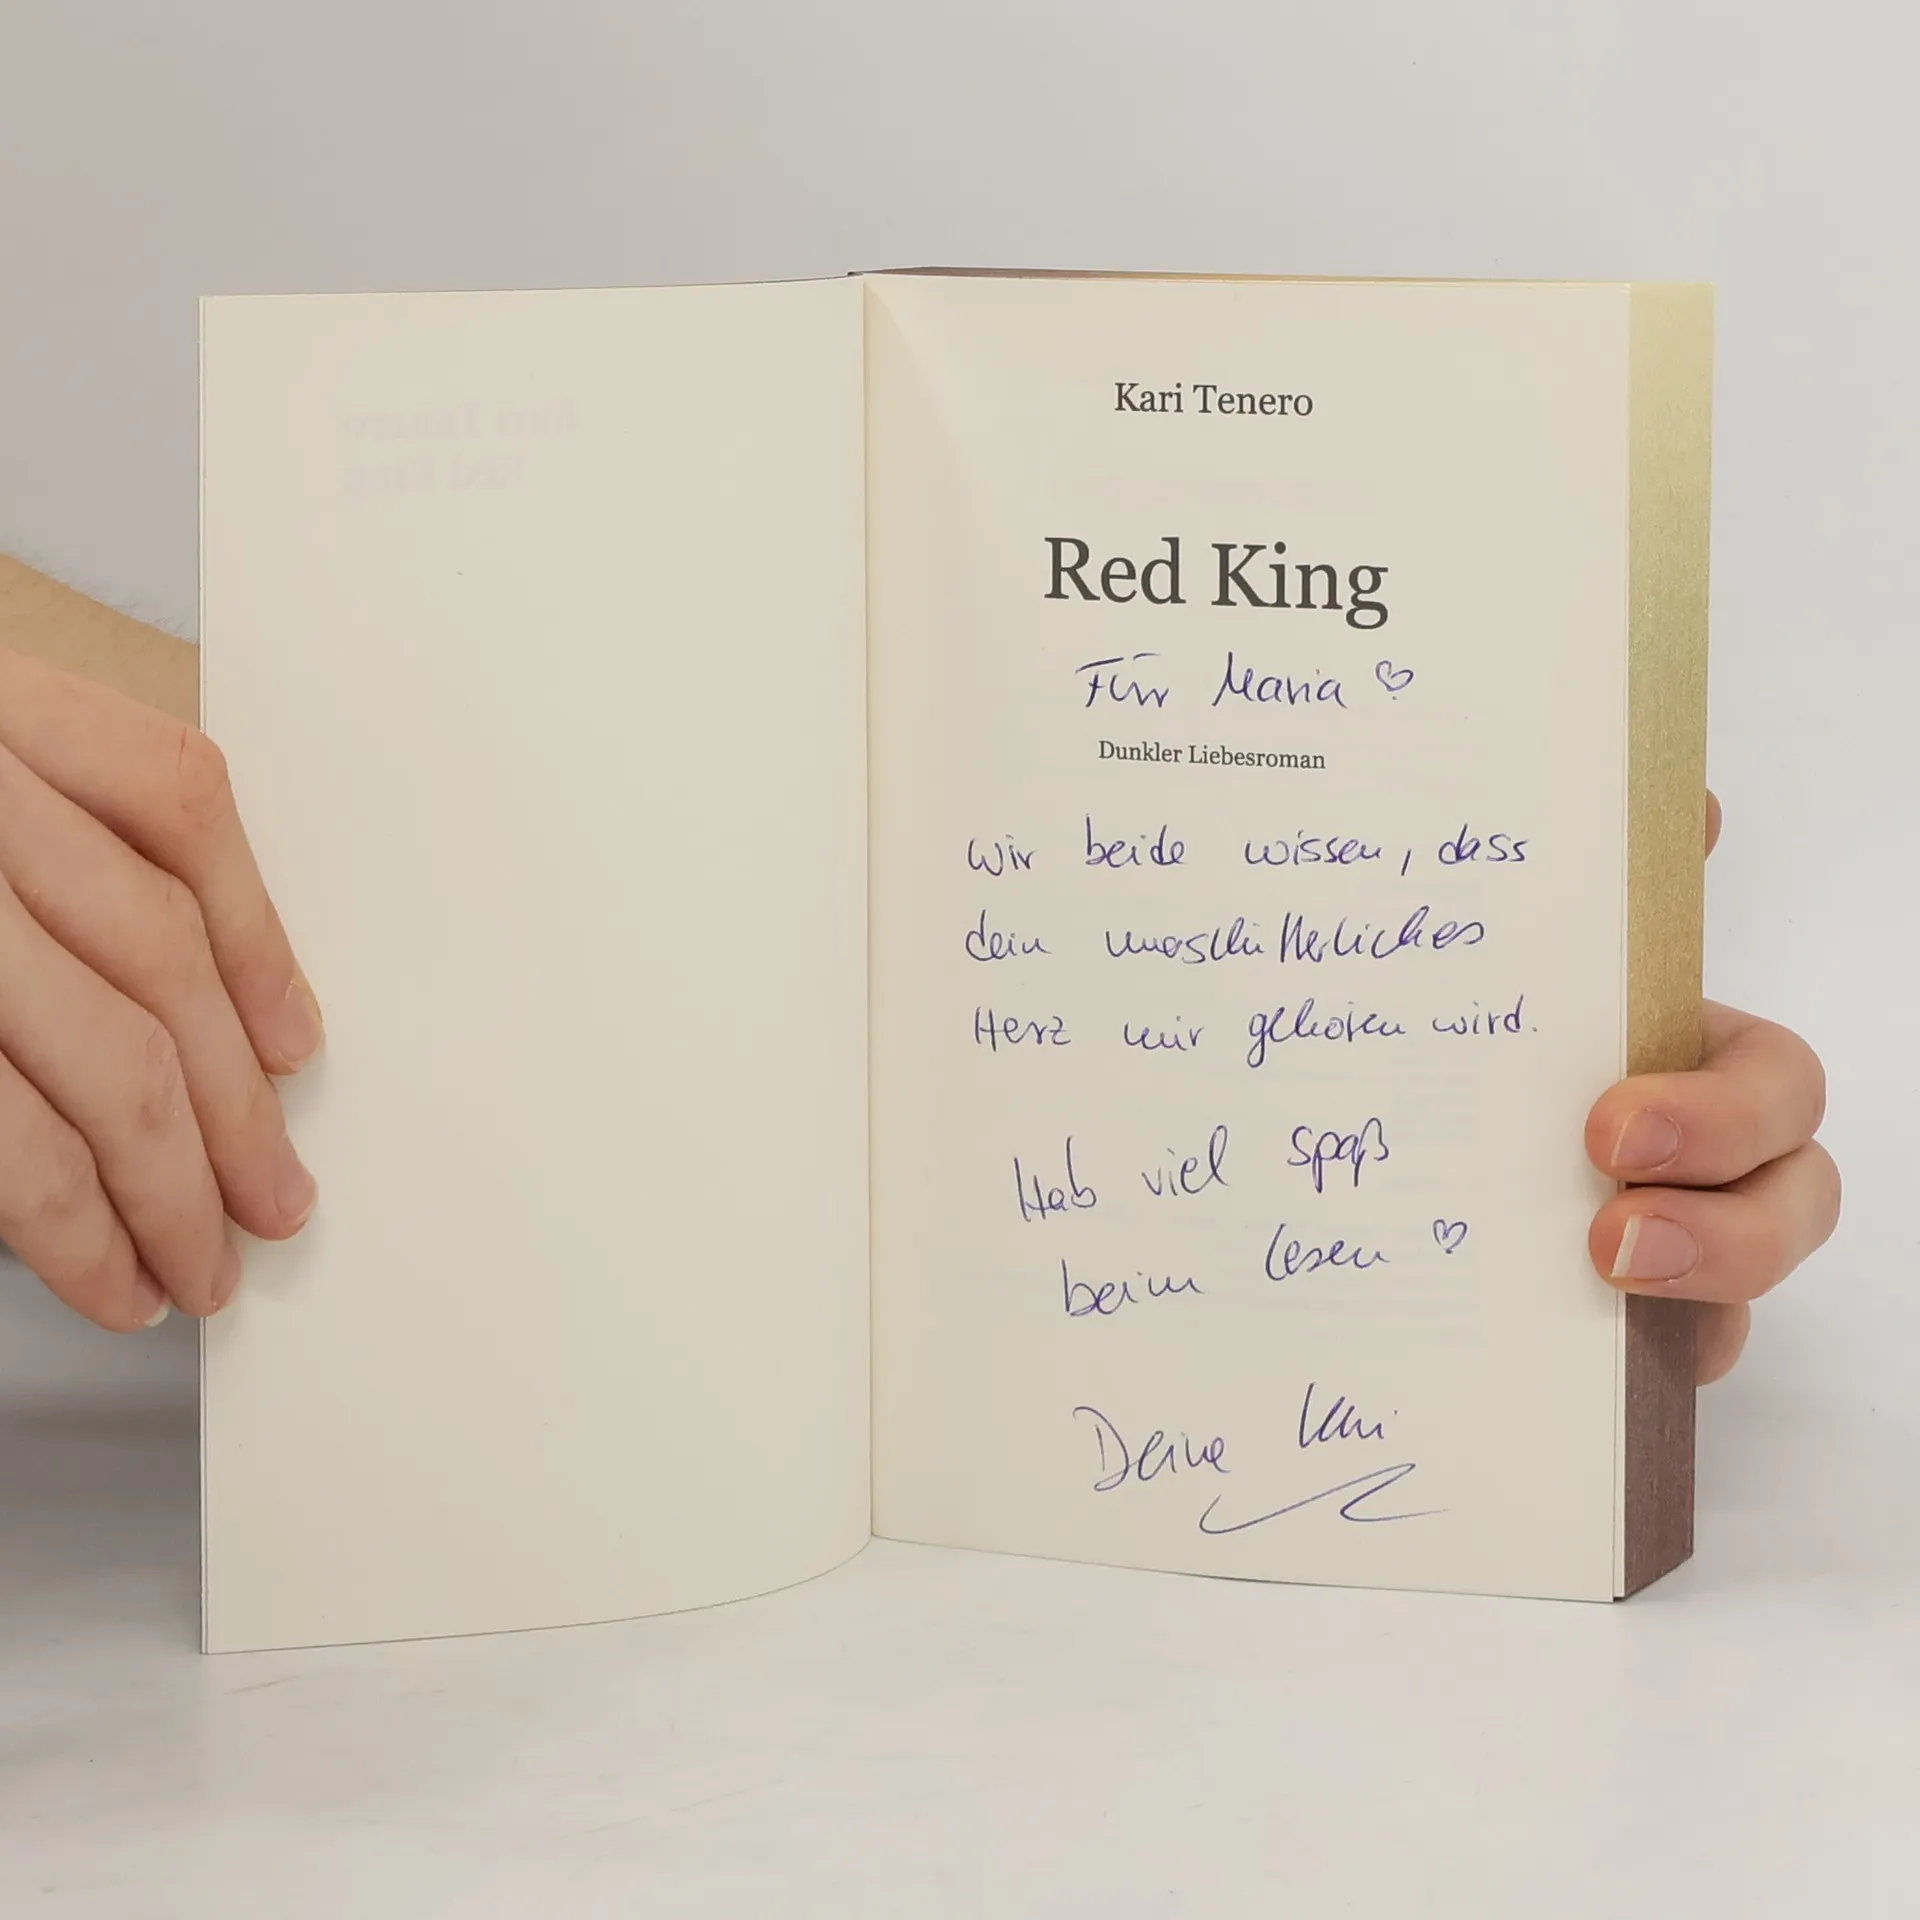 Kari Tenero
Red King
Für Maria
Dunkler Liebesroman
Wir beide wissen, dass
dein unerschütterliches
Herz mir gehören wird.
Hab viel spaß
beim Lesen
Deine Kari